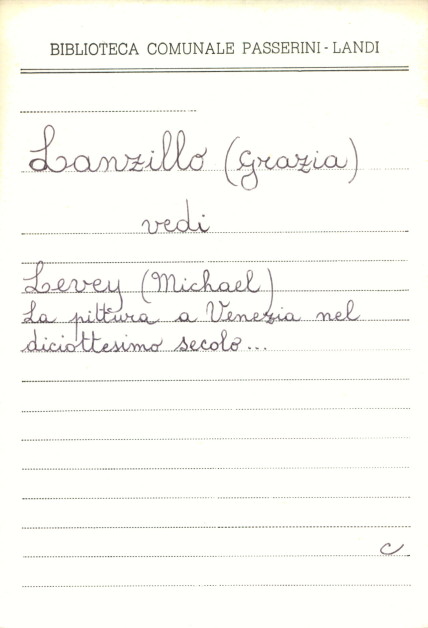 BIBLIOTECA COMUNALE PASSERINI - LANDI
Lanzillo (Grazia)
vedi
Levey (Michael)
La pittura a Venezia nel
diciottesimo secolo...
c